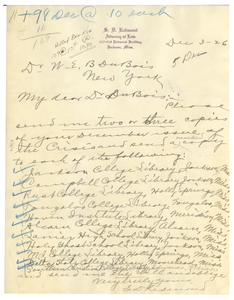 11 + 98 Dec @ 10 each
S. D. Redmond
Attorney at Law
Jackson, Miss.
Dec 3-26
Dr W. E. B DuBois
New York
My dear Dr DuBois:- Please
send me two or three copies
of your December issue of
the Crisis and send a copy
to each of the following:
Jackson College Library, Jackson, Miss
Campbell College Library, Jackson, Miss
Rust College Library, Holly Springs
Tougaloo College Library, Tougaloo, Miss
Haven Institute Library, Meridian
Alcorn College Library, Alcorn, Miss
Lanier High School, Jackson, Miss
Holy Ghost School Library, Jackson, Miss
M. I. College Library, Holly Springs, Miss
Very truly yours,
S. D. Redmond